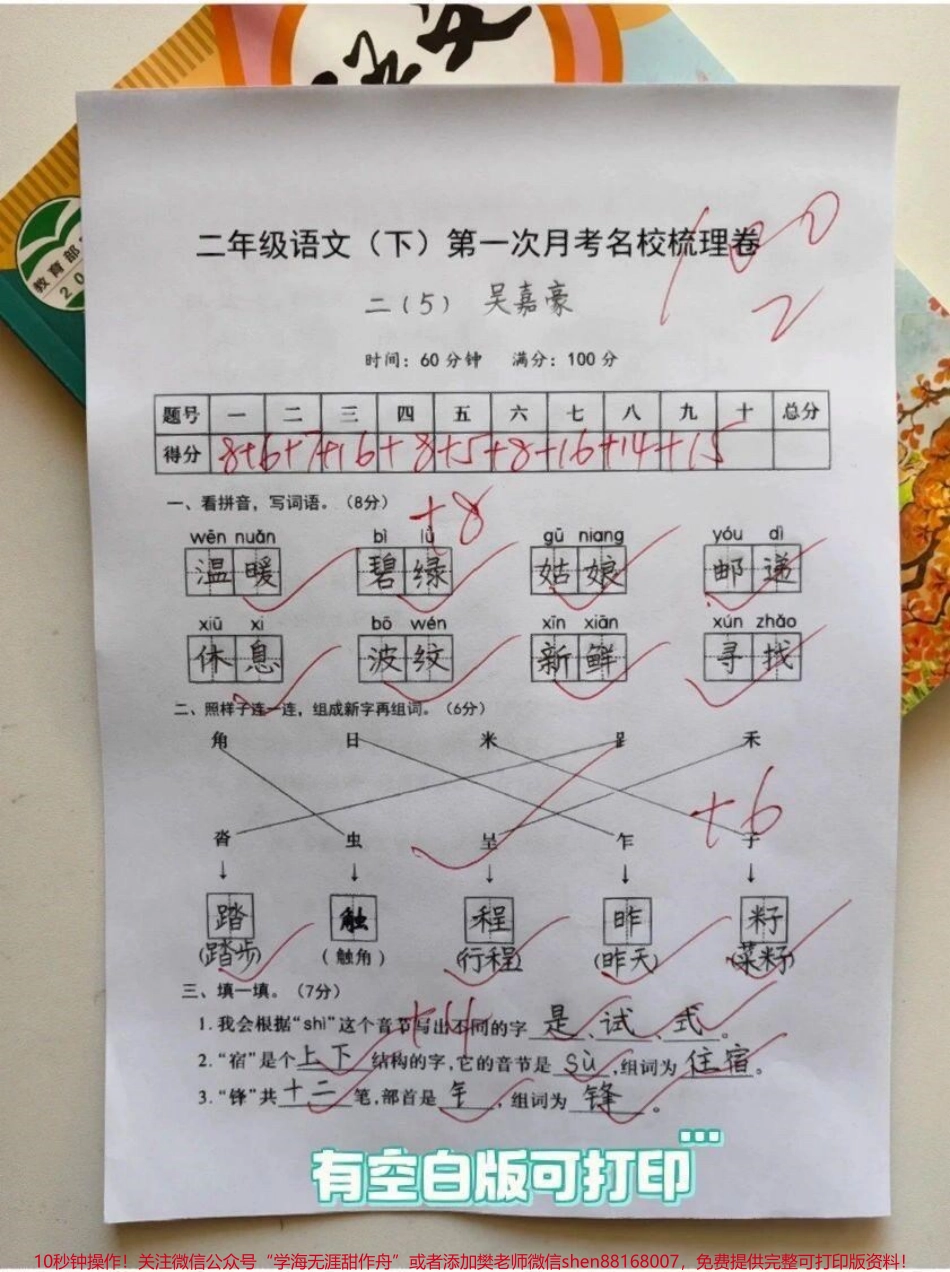 教育部
20
二年级语文（下）第一次月考名校梳理卷
100
2
二（5） 吴嘉豪
时间：60分钟 满分：100分
题号 一 二 三 四 五 六 七 八 九 十 总分
得分 8+6+7+16+8+5+8+16+14+15
一、看拼音，写词语。（8分） +8
wēn nuǎn bì lǜ gū niang yóu dì
温暖 碧绿 姑娘 邮递
xiū xi bō wén xīn xiān xún zhǎo
休息 波纹 新鲜 寻找
二、照样子连一连，组成新字再组词。（6分）
角 日 米 𧾷 禾
+6
沓 虫 呈 乍 子
↓ ↓ ↓ ↓ ↓
踏 触 程 昨 籽
（踏步） （触角） （行程） （昨天） （菜籽）
三、填一填。（7分）
1.我会根据“shì”这个音节写出不同的字 是、试、式。
2.“宿”是个上下结构的字，它的音节是 sù，组词为 住宿。
3.“锋”共十二笔，部首是 钅，组词为 锋。
有空白版可打印...
10秒钟操作！关注微信公众号“学海无涯甜作舟”或者添加樊老师微信shen88168007，免费提供完整可打印版资料！